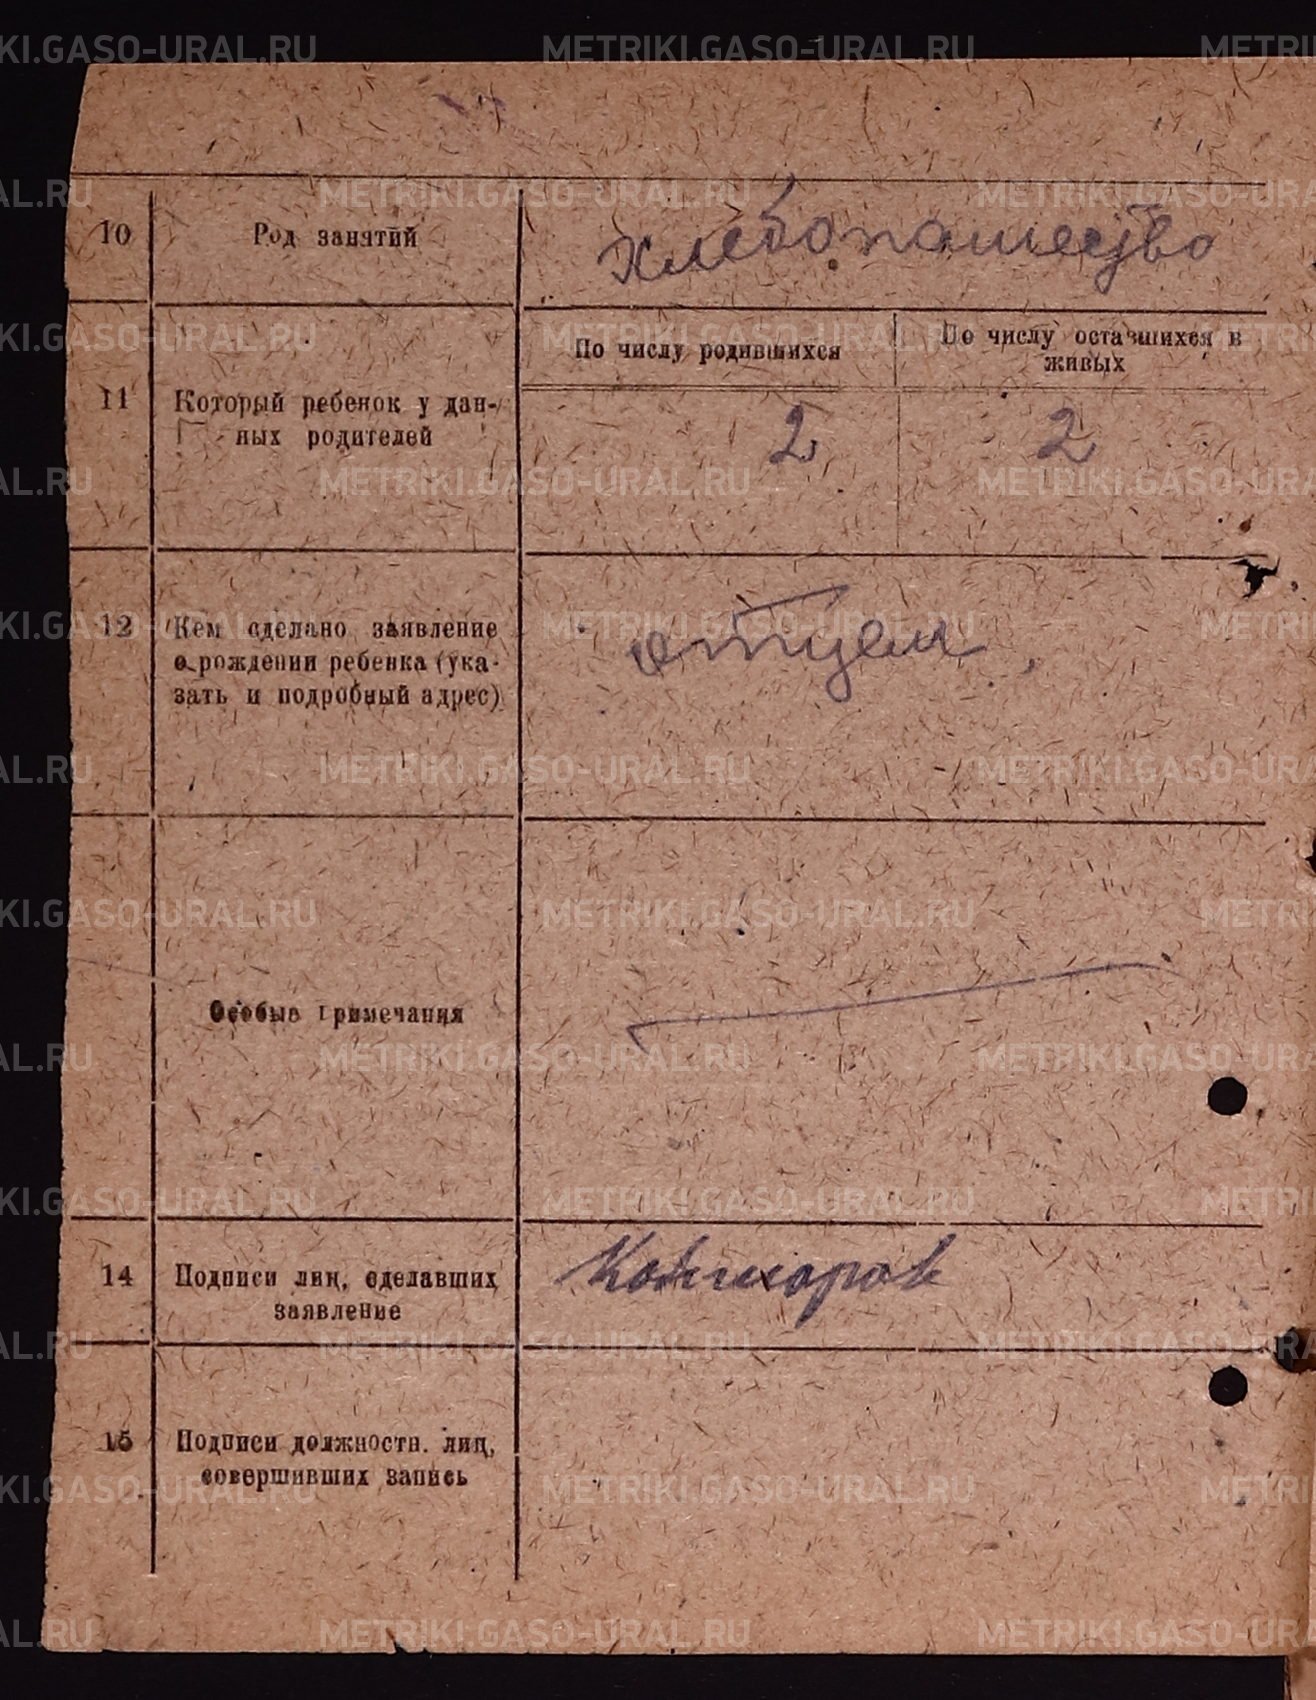 10
Род занятий
Хлебопашество
11
Который ребенок у дан-
ных родителей
По числу родившихся
По числу оставшихся в
живых
2
2
12
Кем сделано заявление
о рождении ребенка (ука-
зать и подробный адрес)
отцем
Особые примечания
14
Подписи лиц, сделавших
заявление
15
Подписи должностн. лиц,
совершивших запись
METRIKI.GASO-URAL.RU